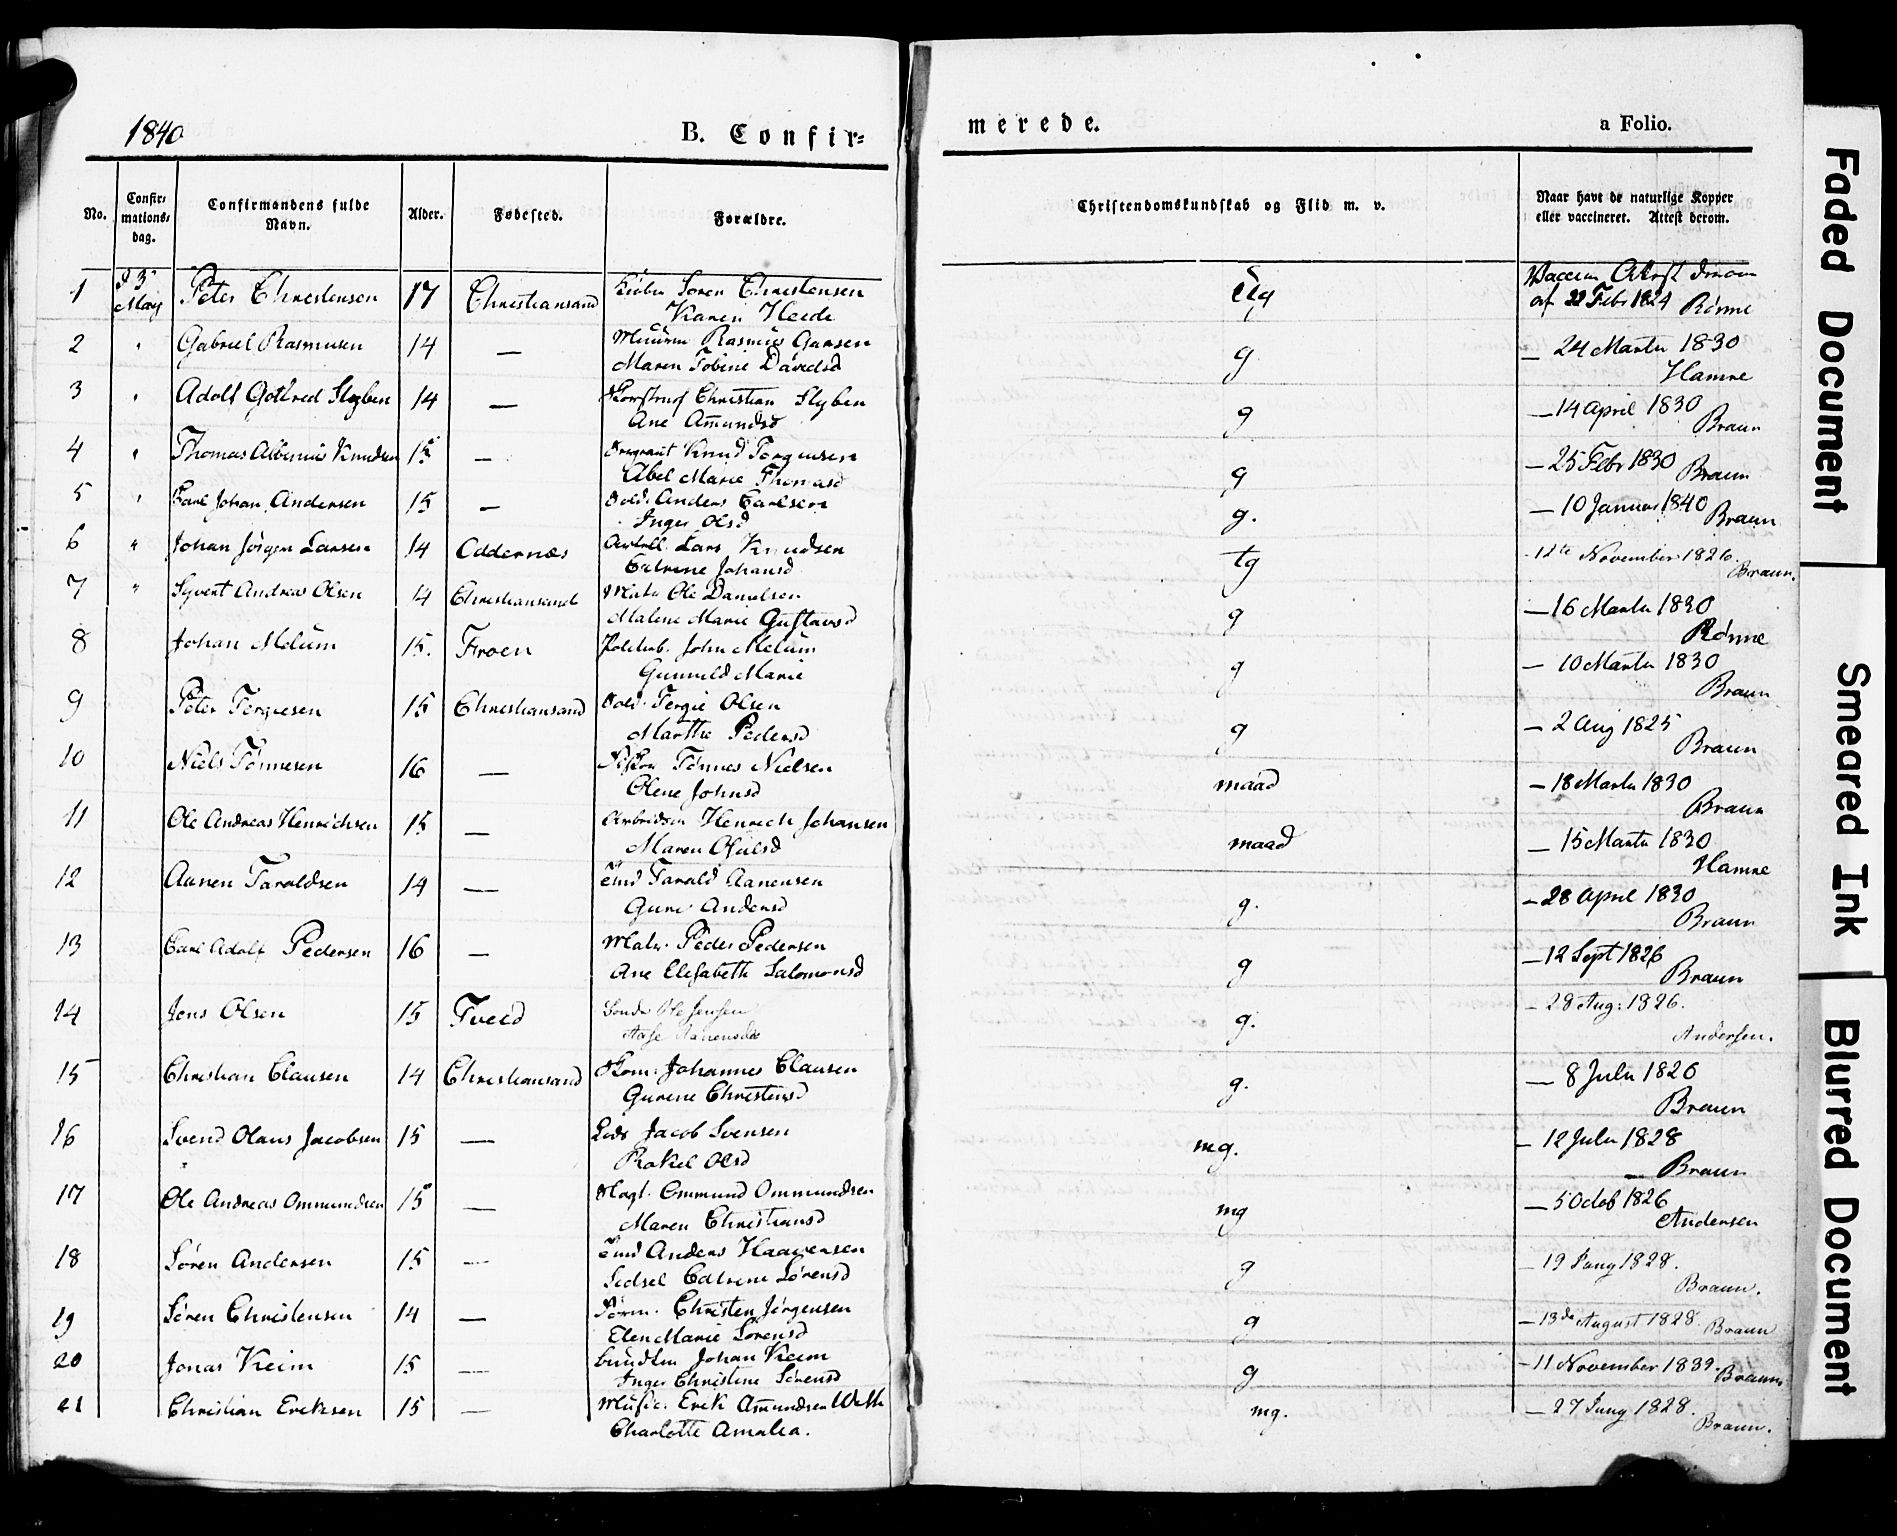 1840 B. Confir= merede. a Folio.
No. Confirmations= dag. Confirmandens fulde Navn. Alder. Fødested. Forældre. Christendomskundskab og Flid m. v. Naar havt de naturlige Kopper eller vaccineret. Attest derom.
1 d 3 May Peter Christensen 17 Christiansand Søren Christensen
Karen Heide
af 22 Febr 1824 Rønne
2 " Gabriel Rasmusen 14 — Rasmus Gansen g — 24 Marts 1830
Maren Tobine Davidsd Hamre
3 " Adolf Gotfred Slyben 14 — Christian Slyben g — 14 April 1830
Ane Amundsd Braun
4 " Thomas Albinius Knudsen 15 — Knud Torgensen g — 25 Febr 1830
Abel Marie Thomasd Braun
5 " Carl Johan Andersen 15 — Sold. Anders Carlsen g. — 10 Januar 1840
Inger Olsd Braun
6 " Johan Jørgen Larsen 14 Oddernæs Lars Knudsen tg - 12te November 1826.
Catrine Johansd Braun.
7 " Syvert Andreas Olsen 14 Christiansand Matr Ole Danielsen g — 16 Marts 1830
Malene Marie Gustavsd Rønne
8 Johan Melum 15. Froen John Melum g — 10 Marts 1830
Gunnild Marie Braun
9 Peter Tergiesen 15 Christiansand Sold. Tergie Olsen g — 2 Aug 1825
Marthe Pedersd Braun
10 Niels Tønnesen 16 — Tønnes Nielsen maad — 18 Marts 1830
Olene Johnsd Braun
11 Ole Andreas Henrichsen 15 — Henrich Johansen maad — 15 Marts 1830
Maren Olsd Hamre
12 Aanen Taraldsen 14 — Tarald Aanensen g. — 28 April 1830
Guro Andersd Braun
13 Carl Adolf Pedersen 16 — Matr. Peder Pedersen g — 12 Sept 1826
Ane Elisabeth Salomonsd Braun
14 Jens Olsen 15 Tveid Ole Jensen g. — 28 Aug: 1826.
Aase Aanensda Andersen.
15 Christian Clausen 14 Christiansand Johannes Clausen g. — 8 July 1826
Gurine Christensd Braun
16 Svend Olaus Jacobsen 15 — Lods Jacob Svensen mg. — 12 July 1828
Rakel Olsd — Braun
17 Ole Andreas Ommundsen 15 — Ommund Ommundsen mg — 5 Octob 1826
Maren Christiansd Andersen
18 Søren Andersen 15 — Anders Haagensen g — 19 Juny 1828.
Sidsel Catrine Sørensd Braun.
19 Søren Christensen 14 — Christen Jørgensen g — 13de August 1828.
Elen Marie Sørensd Braun
20 Jonas Keim 15 — Johan Keim g — 11 November 1839.
Inger Christine Sørensd Braun
21 Christian Ericksen 15 — Music. Erik Amundsen mg. — 27 Juny 1828.
Charlotte Amalia. Braun.
Faded Document
Smeared Ink
Blurred Document